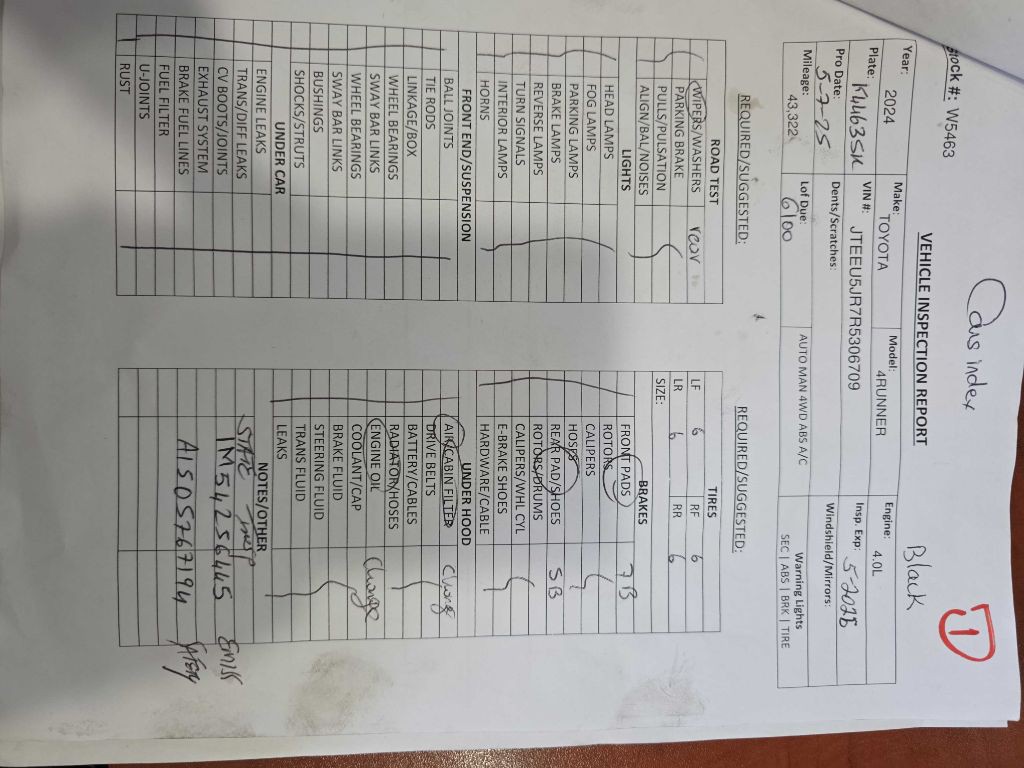 Stock #: W5463
Cars index
Black
1
VEHICLE INSPECTION REPORT
Year: 2024 Make: TOYOTA Model: 4RUNNER Engine: 4.0L
Plate: VIN #: JTEEU5JR7R5306709 Insp. Exp:
Pro Date: 5-7-25 Dents/Scratches: Windshield/Mirrors:
Mileage: 43,322 Lof Due: 6100 AUTO MAN 4WD ABS A/C Warning Lights
SEC | ABS | BRK | TIRE
REQUIRED/SUGGESTED:
ROAD TEST
WIPERS/WASHERS rear
PARKING BRAKE
PULLS/PULSATION
ALIGN/BAL/NOISES
LIGHTS
HEAD LAMPS
FOG LAMPS
PARKING LAMPS
BRAKE LAMPS
REVERSE LAMPS
TURN SIGNALS
INTERIOR LAMPS
HORNS
FRONT END/SUSPENSION
BALL JOINTS
TIE RODS
LINKAGE/BOX
WHEEL BEARINGS
SWAY BAR LINKS
WHEEL BEARINGS
SWAY BAR LINKS
BUSHINGS
SHOCKS/STRUTS
UNDER CAR
ENGINE LEAKS
TRANS/DIFF LEAKS
CV BOOTS/JOINTS
EXHAUST SYSTEM
BRAKE FUEL LINES
FUEL FILTER
U-JOINTS
RUST
REQUIRED/SUGGESTED:
TIRES
LF 6 RF 6
LR 6 RR 6
SIZE:
BRAKES
FRONT PADS 7B
ROTORS
CALIPERS
HOSES
REAR PAD/SHOES 5B
ROTORS/DRUMS
CALIPERS/WHL CYL
E-BRAKE SHOES
HARDWARE/CABLE
UNDER HOOD
AIR/CABIN FILTER Change
DRIVE BELTS
BATTERY/CABLES
RADIATOR/HOSES
ENGINE OIL Change
COOLANT/CAP
BRAKE FLUID
STEERING FLUID
TRANS FLUID
LEAKS
NOTES/OTHER
STATE insp
IM54256445 Emiss
AI505767194 Safety